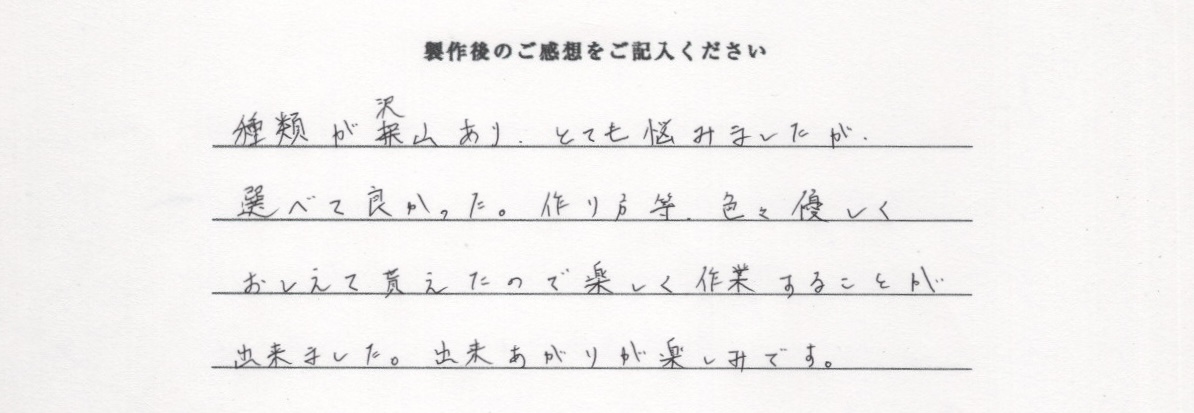 製作後のご感想をご記入ください
種類が沢山あり、とても悩みましたが、
選べて良かった。作り方等、色々優しく
おしえて貰えたので楽しく作業することが
出来ました。出来あがりが楽しみです。